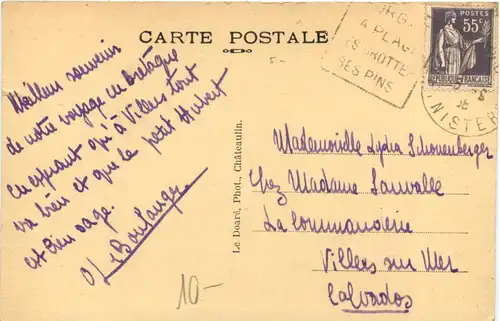 CARTE POSTALE
MORGAT
SA PLAGE
SES GROTTES
SES PINS
POSTES
55c
REPUBLIQUE FRANÇAISE
FINISTERE
Meilleur souvenir
de notre voyage en Bretagne
En espérant qu'à Villers tout
va bien et que le petit Hubert
est bien sage.
Boulanger
Le Doaré, Phot., Châteaulin.
Mademoiselle Lydia Schonenberger
Chez Madame Lauvalle
La Commanderie
Villers sur Mer
Calvados
10-